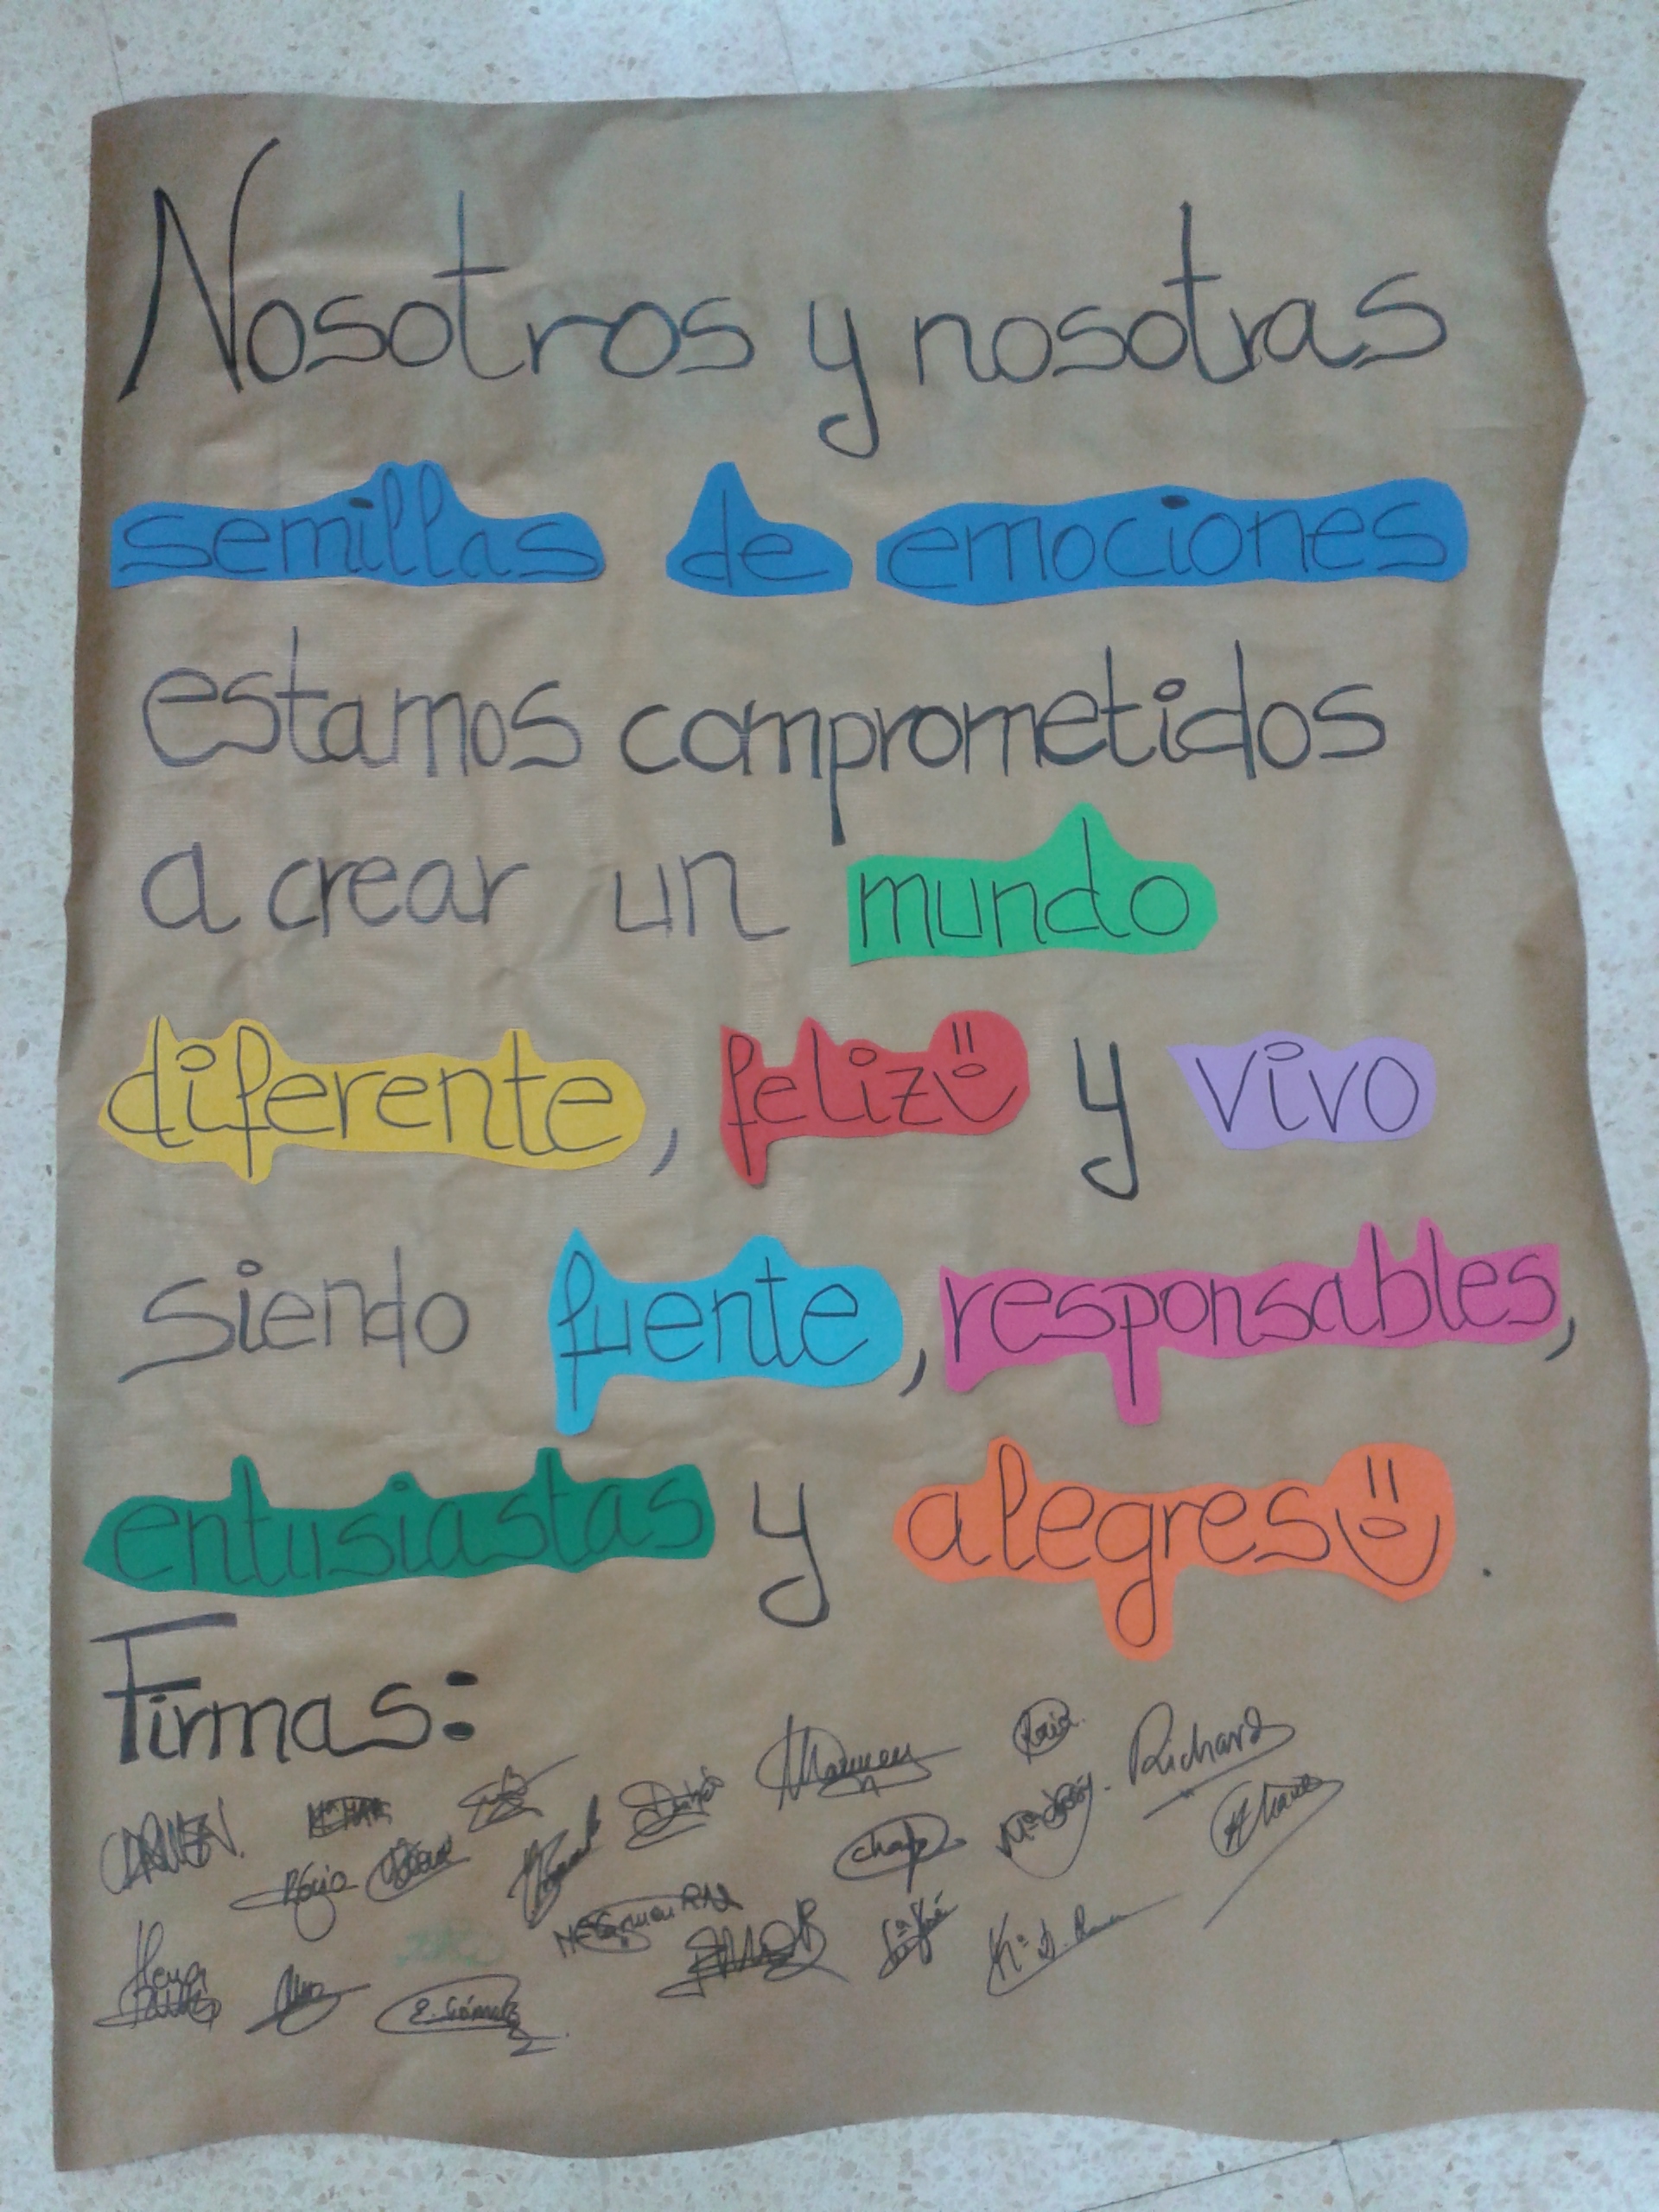 Nosotros y nosotras
semillas de emociones
estamos comprometidos
a crear un mundo
diferente, feliz y vivo
siendo fuente, responsables,
entusiastas y alegres.
Firmas:
Richard
CARMEN.
Rocío
E. Gómez